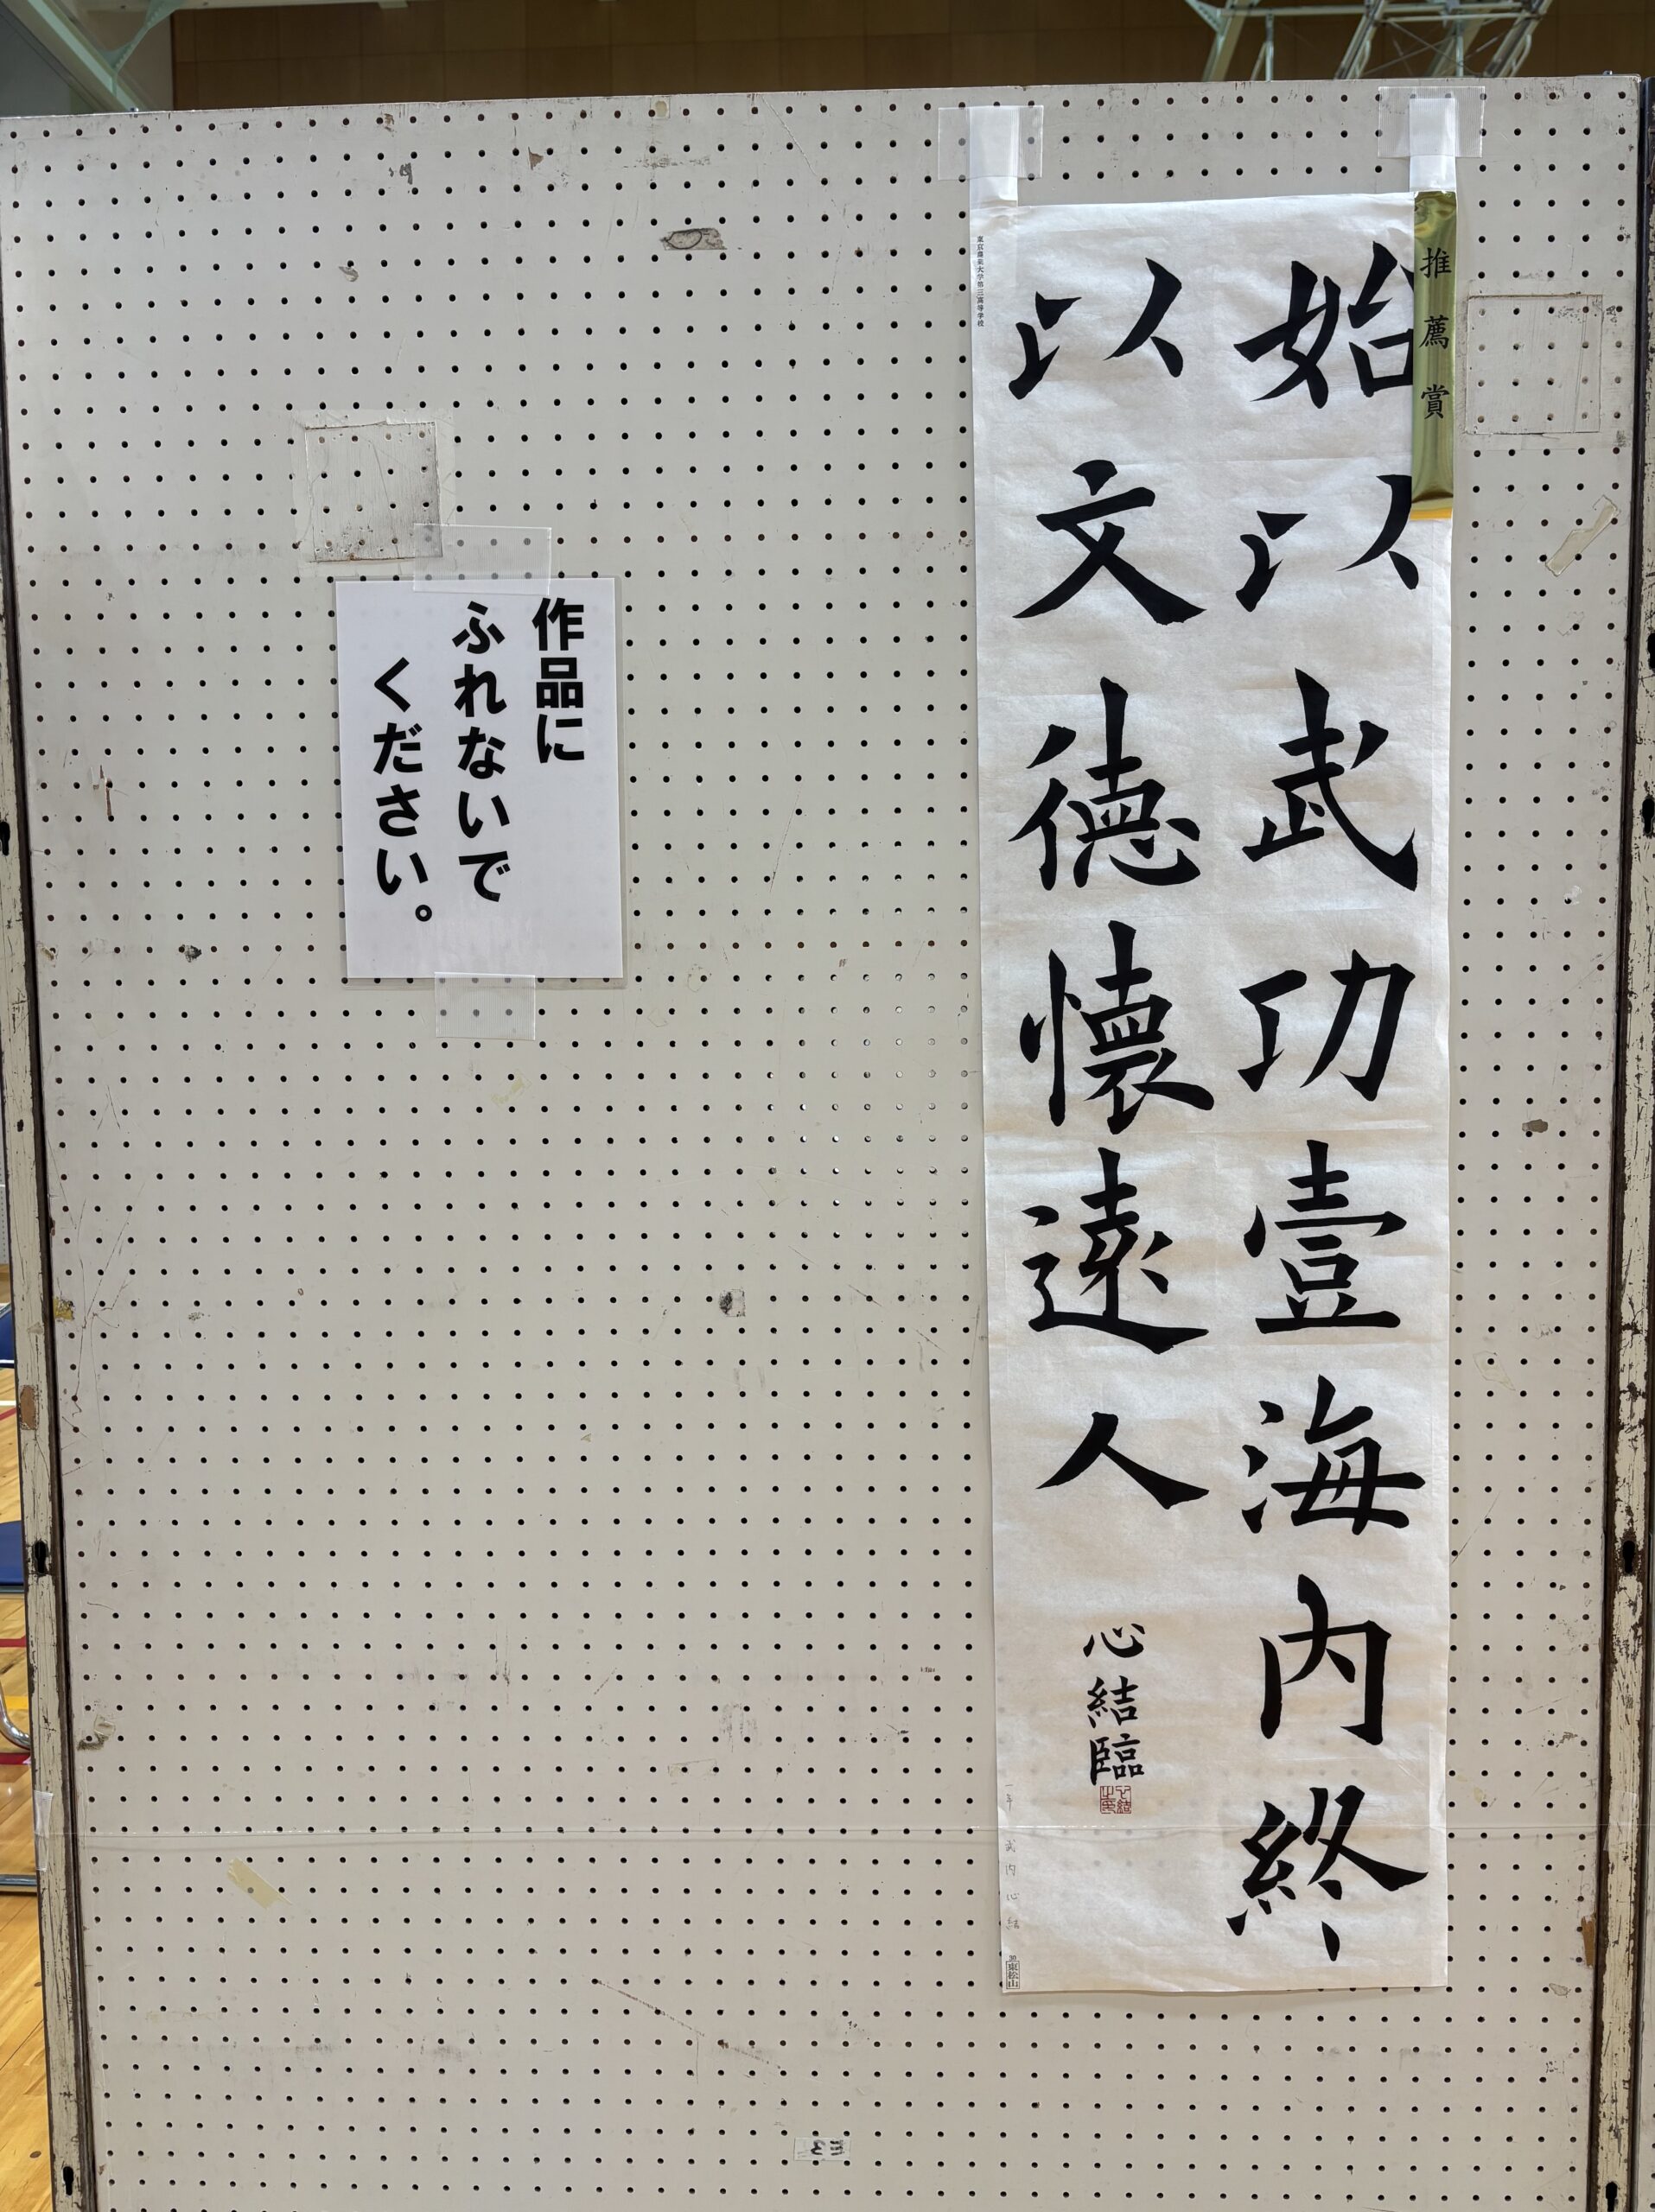 推薦賞
始以武功壹海内終
以文德懷遠人
心結臨
東京農業大学第三高等学校
一年 武内心結
東松山
作品に
ふれないで
ください。